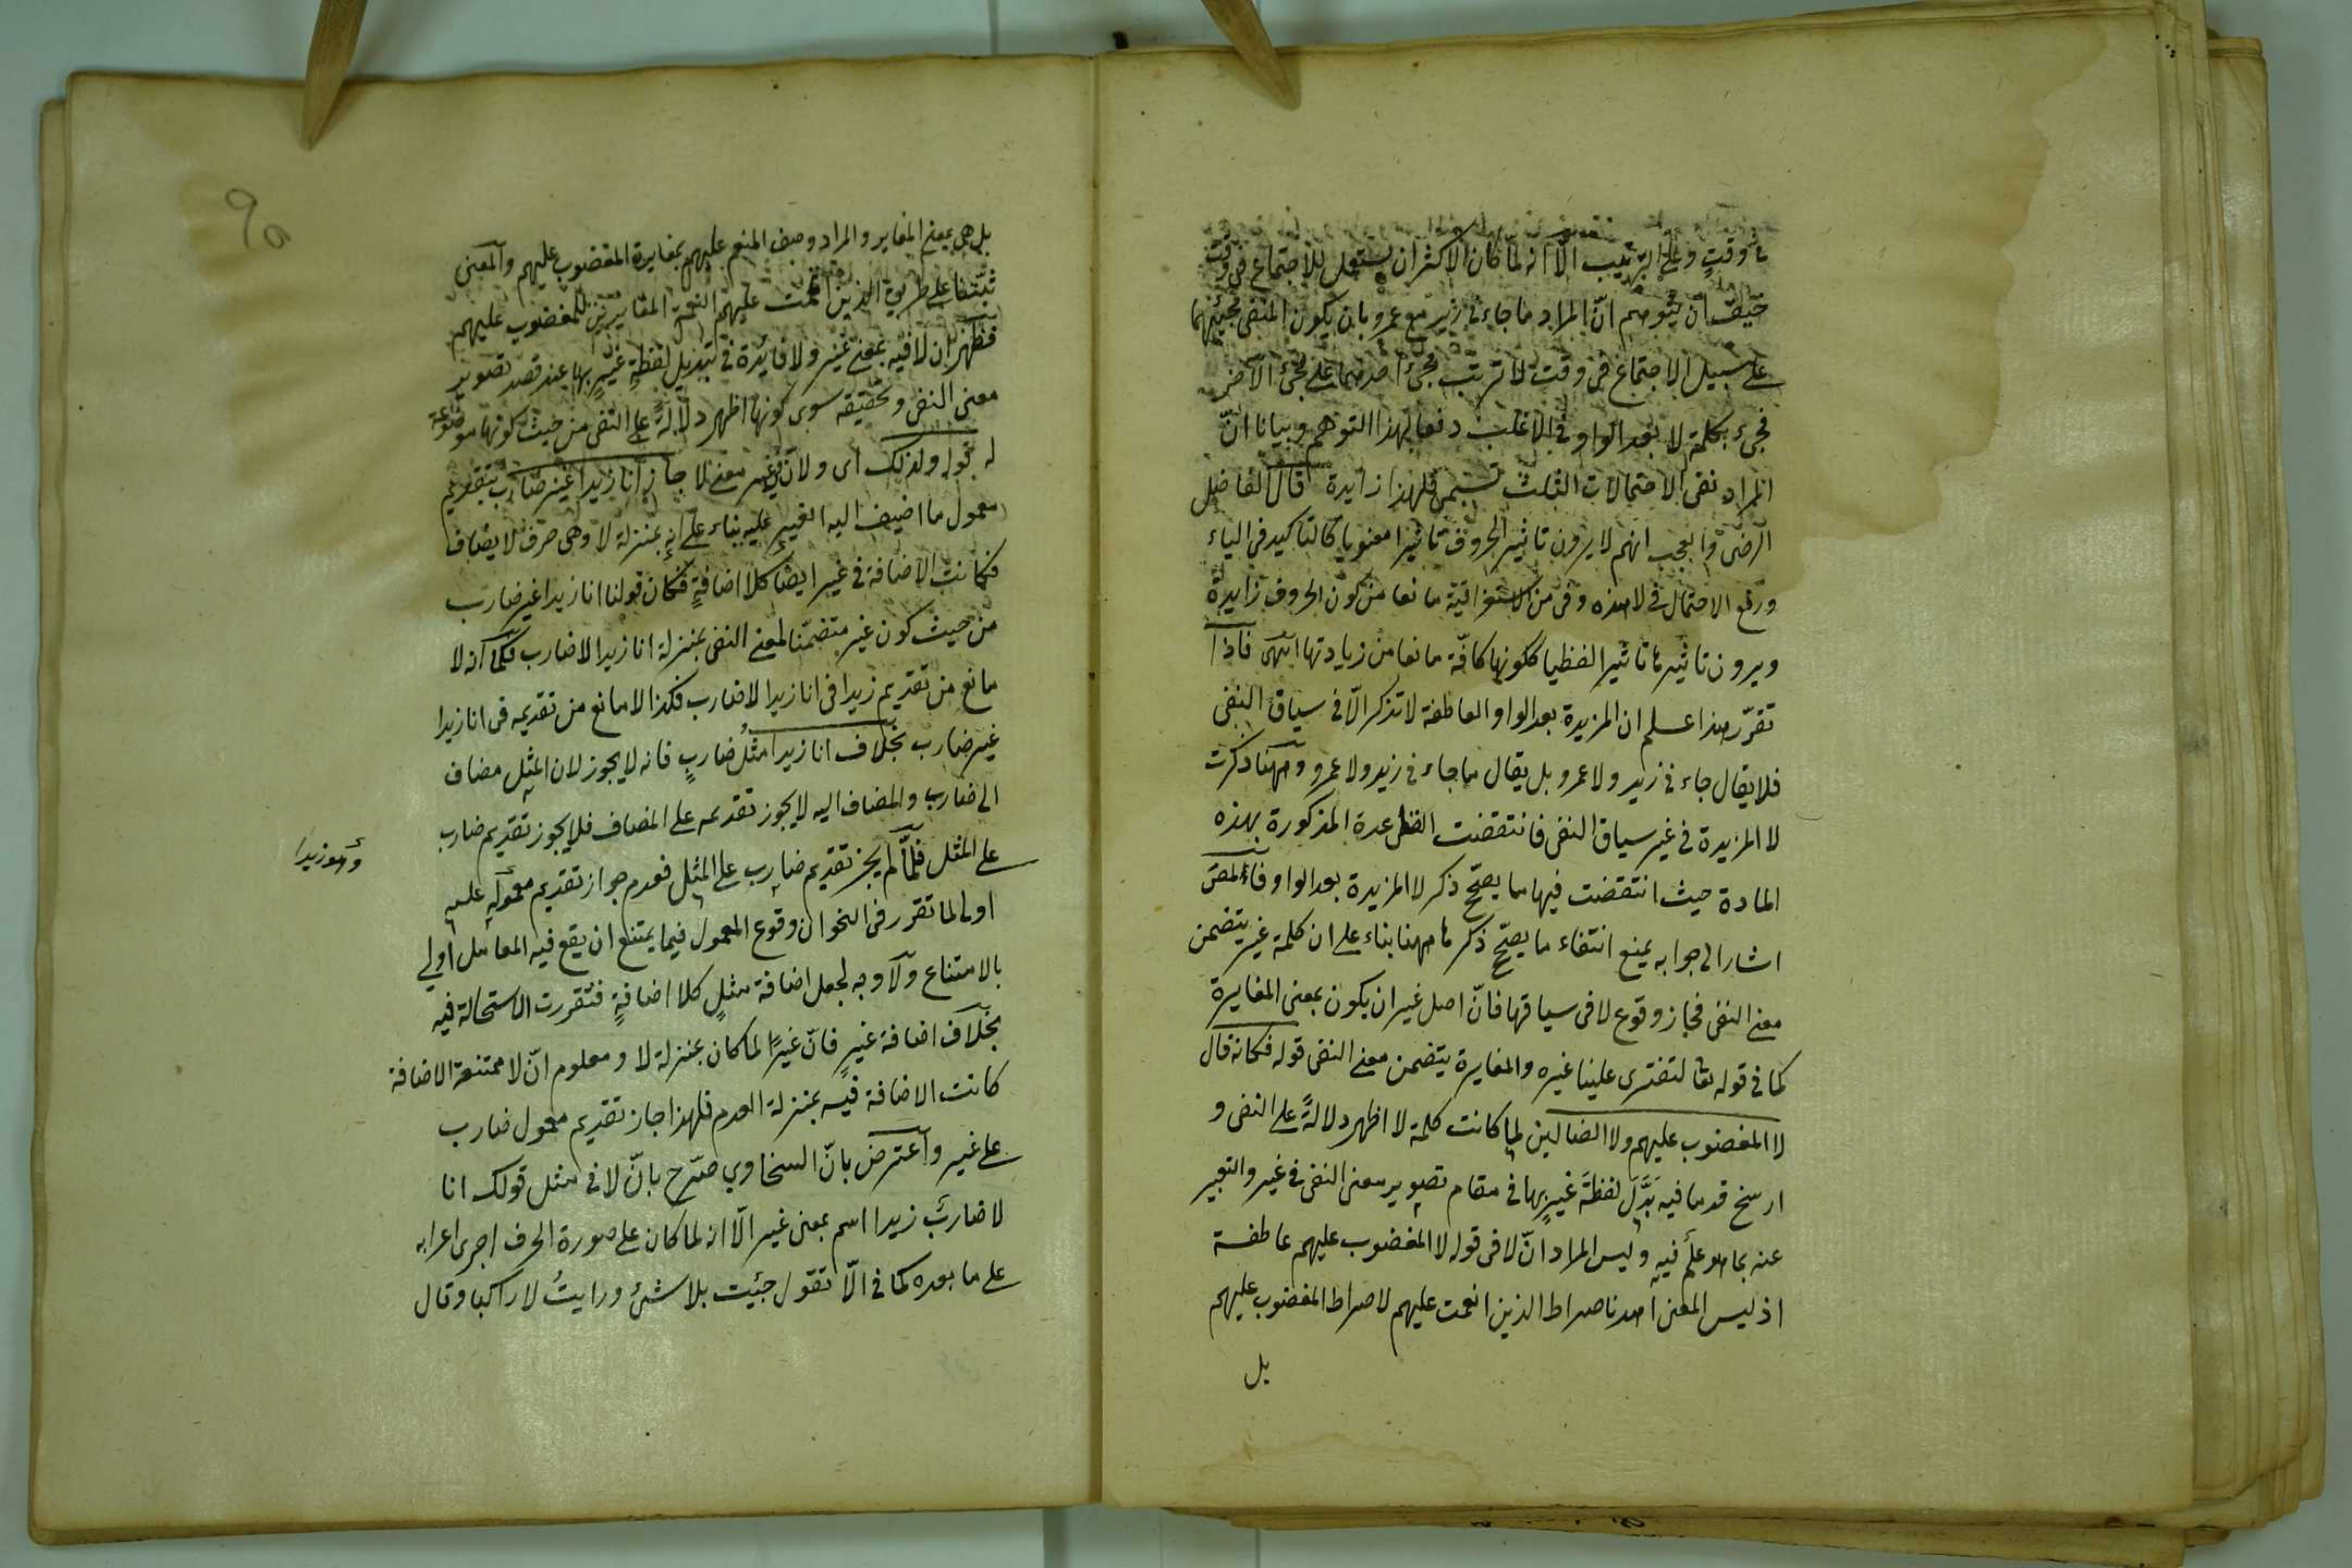 وقتٍ وعلى الترتيب الّا انه لمّا كان الاكثر ان يستعمل للاجتماع فى وقت
خيف ان يتوهم انّ المراد ما جاءنى زيد مع عمرو بان يكون المنفى مجيئهما
على سبيل الاجتماع فى وقت لا ترتب مجئ احدهما على مجئ الآخر
فجئ بكلمة لا بعد الواو فى الاغلب دفعا لهذا التوهم وبيانا انّ
المراد نفى الاحتمالات الثلث تسمى فلهذا زايدة قال الفاضل
الرضى والعجب انهم لا يرون تاثير الحروف تاثيرا معنويا كالتاكيد فى الباء
ورفع الاحتمال فى لا هذه وفى من الاستغراقية مانعا من كون الحروف زايدة
ويرون تاثيرها تاثيرا لفظيا ككونها كافّة مانعا من زيادتها انتهى فاذا
تقرّر هذا علم ان المزيدة بعد الواو العاطفة لا تذكر الّا فى سياق النفى
فلا يقال جاءنى زيد ولا عمرو بل يقال ما جاءنى زيد ولا عمرو وههنا ذكرت
لا المزيدة فى غير سياق النفى فانتقضت القاعدة المذكورة بهذه
المادة حيث انتقضت فيها ما يصحّح ذكر لا المزيدة بعد الواو فالمص
اشار الى جوابه بمنع انتفاء ما يصحّح ذكرها ههنا بناء على ان كلمة غير يتضمن
معنى النفى فجاز وقوع لا فى سياقها فانّ اصل غير ان يكون بمعنى المغايرة
كما فى قوله تعا لتفترى علينا غيره والمغايرة يتضمن معنى النفى قوله فكانه قال
لا المغضوب عليهم ولا الضالين لما كانت كلمة لا اظهر دلالةً على النفى و
ارسخ قدما فيه بَدَّلَ لفظةَ غيرٍ بها فى مقام تصوير معنى النفى فى غير والتعبير
عنه بما هو عَلَم فيه وليس المراد انّ لا فى قوله لا المغضوب عليهم عاطفة
اذ ليس المعنى اهدنا صراط الذين انعمت عليهم لا صراط المغضوب عليهم
بل
بل هى بمعنى المغاير والمراد وصف المنعم عليهم بمغايرة المغضوب عليهم والمعنى
ثبّتنا على طريق الذين انعمت عليهم النعمة المغايرين للمغضوب عليهم
فظهر ان لا فيه بمعنى غير ولا فايدة فى تبديل لفظةِ غيرٍ بها عند قصد تصوير
معنى النفى وتحقيقه سوى كونها اظهر دلالةً على النفى من حيث كونها موضوعة
له قوله ولذلك اى ولان فى غير معنى لا جاز انا زيدا غير ضارب بتقديم
معمول ما اضيف اليه الغير عليه بناء على انه بمنزلة لا وهى حرف لا يضاف
فكانت الاضافة فى غير ايضا كلا اضافةٍ فكان قولنا انا زيدا غير ضارب
من حيث كون غير متضمّنا لمعنى النفى بمنزلة انا زيدا لا ضارب فكما انه لا
مانع من تقديم زيدا فى انا زيدا لا ضارب فكذا لا مانع من تقديمه فى انا زيدا
غير ضارب بخلاف انا زيدا مثلُ ضاربٍ فانه لا يجوز لان المثل مضاف
الى ضارب والمضاف اليه لا يجوز تقديمه على المضاف فلا يجوز تقديم ضارب
على المثل فلمّا لم يجز تقديم ضارب على المثل فعدم جواز تقديم معموله عليه
وهو زيدا
اولى لما تقرر فى النحو ان وقوع المعمول فيما يمتنع ان يقع فيه العامل اولى
بالامتناع ولا وجه لجعل اضافة مثلٍ كلا اضافةٍ فتقررت الاستحالة فيه
بخلاف اضافة غيرٍ فانّ غيرًا لما كان بمنزلة لا ومعلوم انّ لا ممتنعة الاضافة
كانت الاضافة فيه بمنزلة العدم فلهذا جاز تقديم معمول ضارب
على غير واعترض بانّ السخاوي صرّح بانّ لا فى مثل قولك انا
لا ضاربٌ زيدا اسم بمعنى غير الّا انه لما كان على صورة الحرف اجرى اعرابه
على ما بعده كما فى الّا تقول جئت بلا شئ ورايتُ لا راكبا وقال